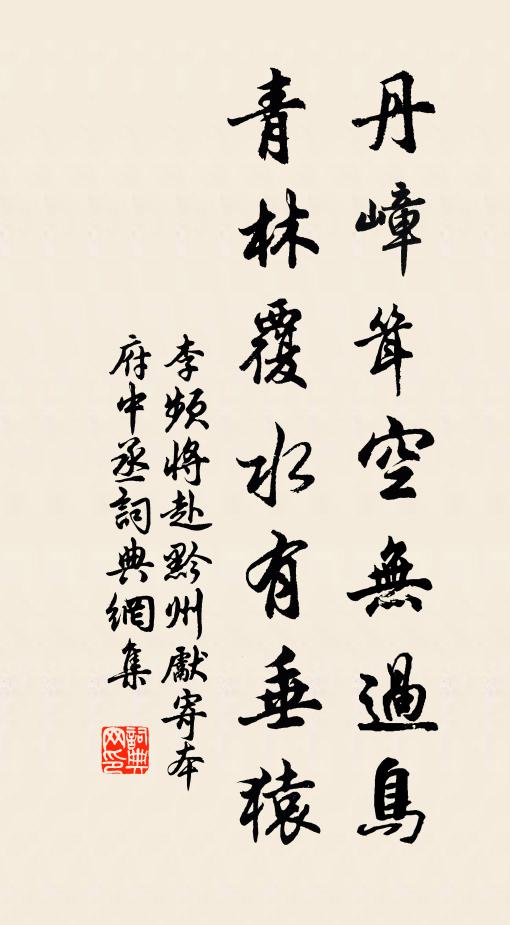 丹嶂耸空無過鳥
青林覆水有垂猿
李频將赴黔州獻寄本
府中丞詞典網集
詞典
网印